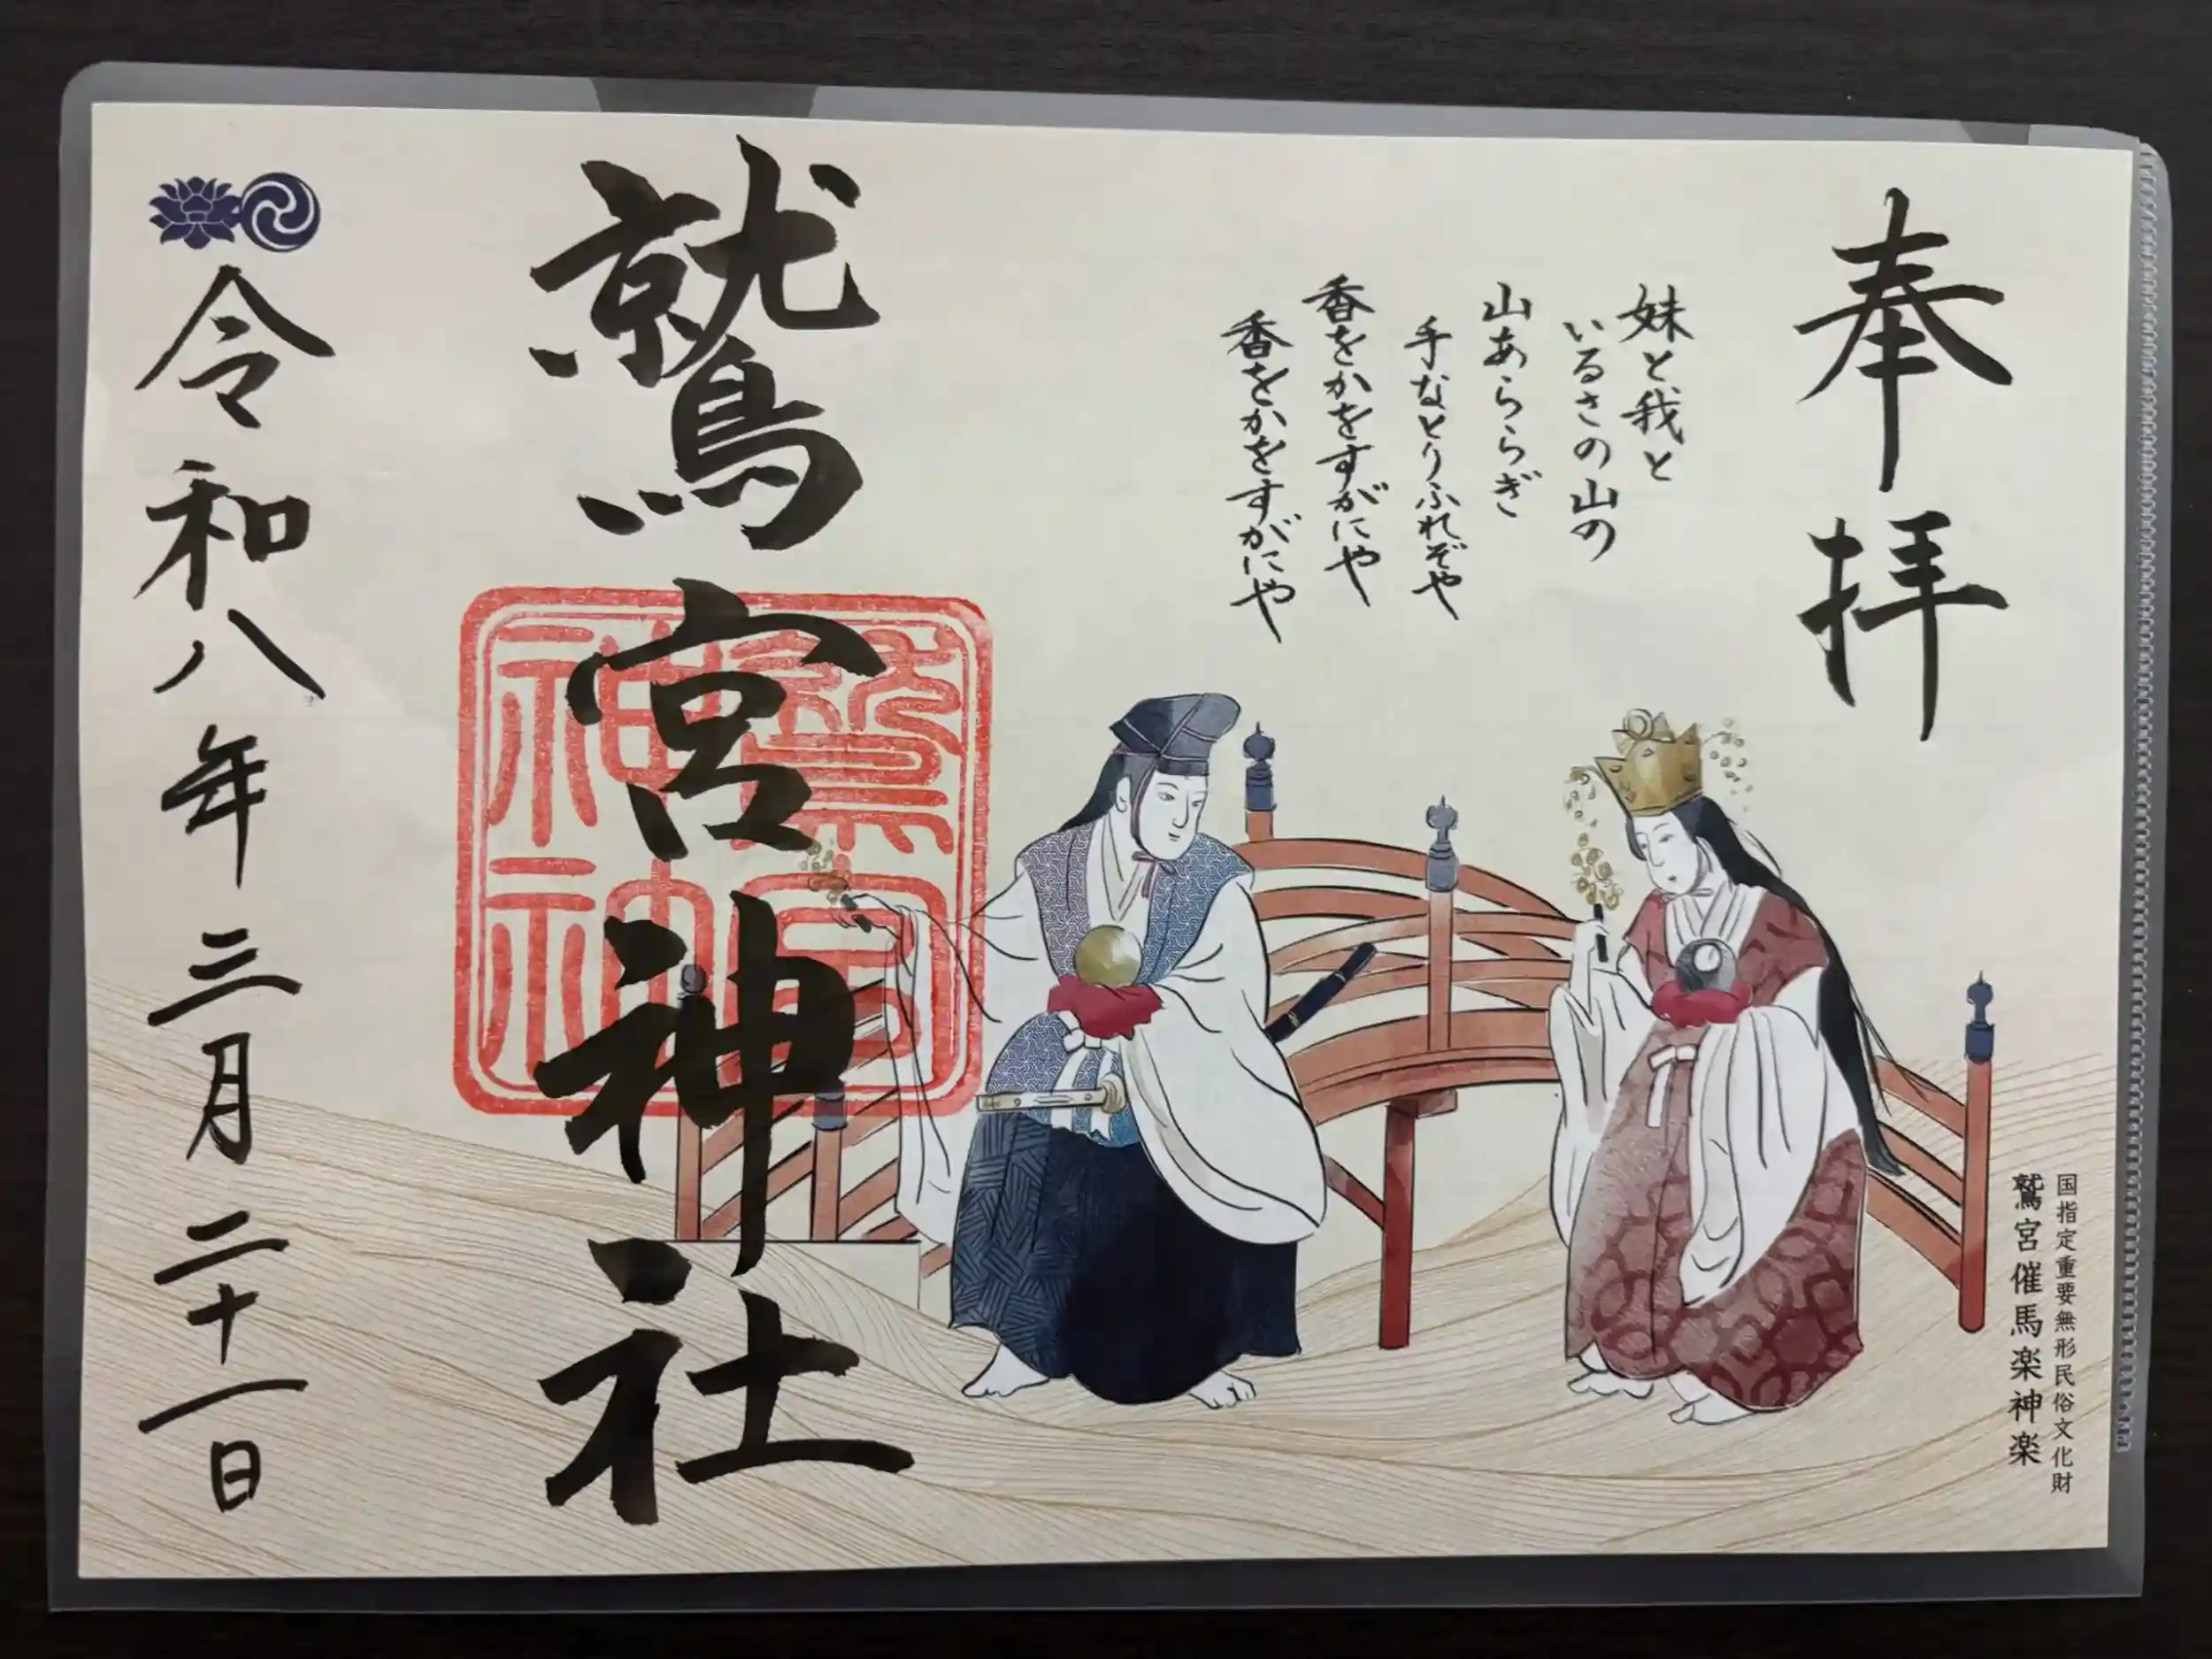 奉拝
妹と我と
いるさの山の
山あららぎ
手なとりふれぞや
香をかをすがにや
香をかをすがにや
国指定重要無形民俗文化財
鷲宮催馬楽神楽
鷲宮神社
鷲宮
神社
令和八年三月二十一日